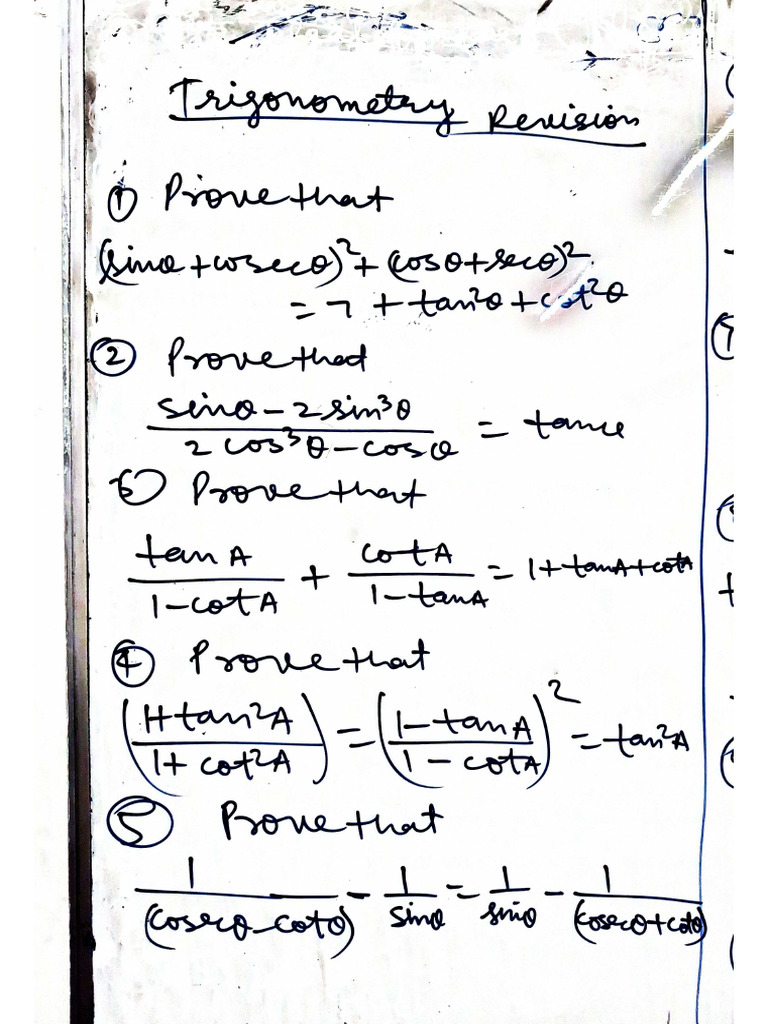 Trigonometry Revision
① Prove that
(sinθ + cosecθ)² + (cosθ + secθ)²
= 7 + tan²θ + cot²θ
② Prove that
sinθ - 2 sin³θ / 2 cos³θ - cosθ = tanθ
③ Prove that
tan A / 1 - cot A + cot A / 1 - tan A = 1 + tan A + cot A
④ Prove that
(1 + tan²A / 1 + cot²A) = (1 - tan A / 1 - cot A)² = tan²A
⑤ Prove that
1 / (cosecθ - cotθ) - 1 / sinθ = 1 / sinθ - 1 / (cosecθ + cotθ)